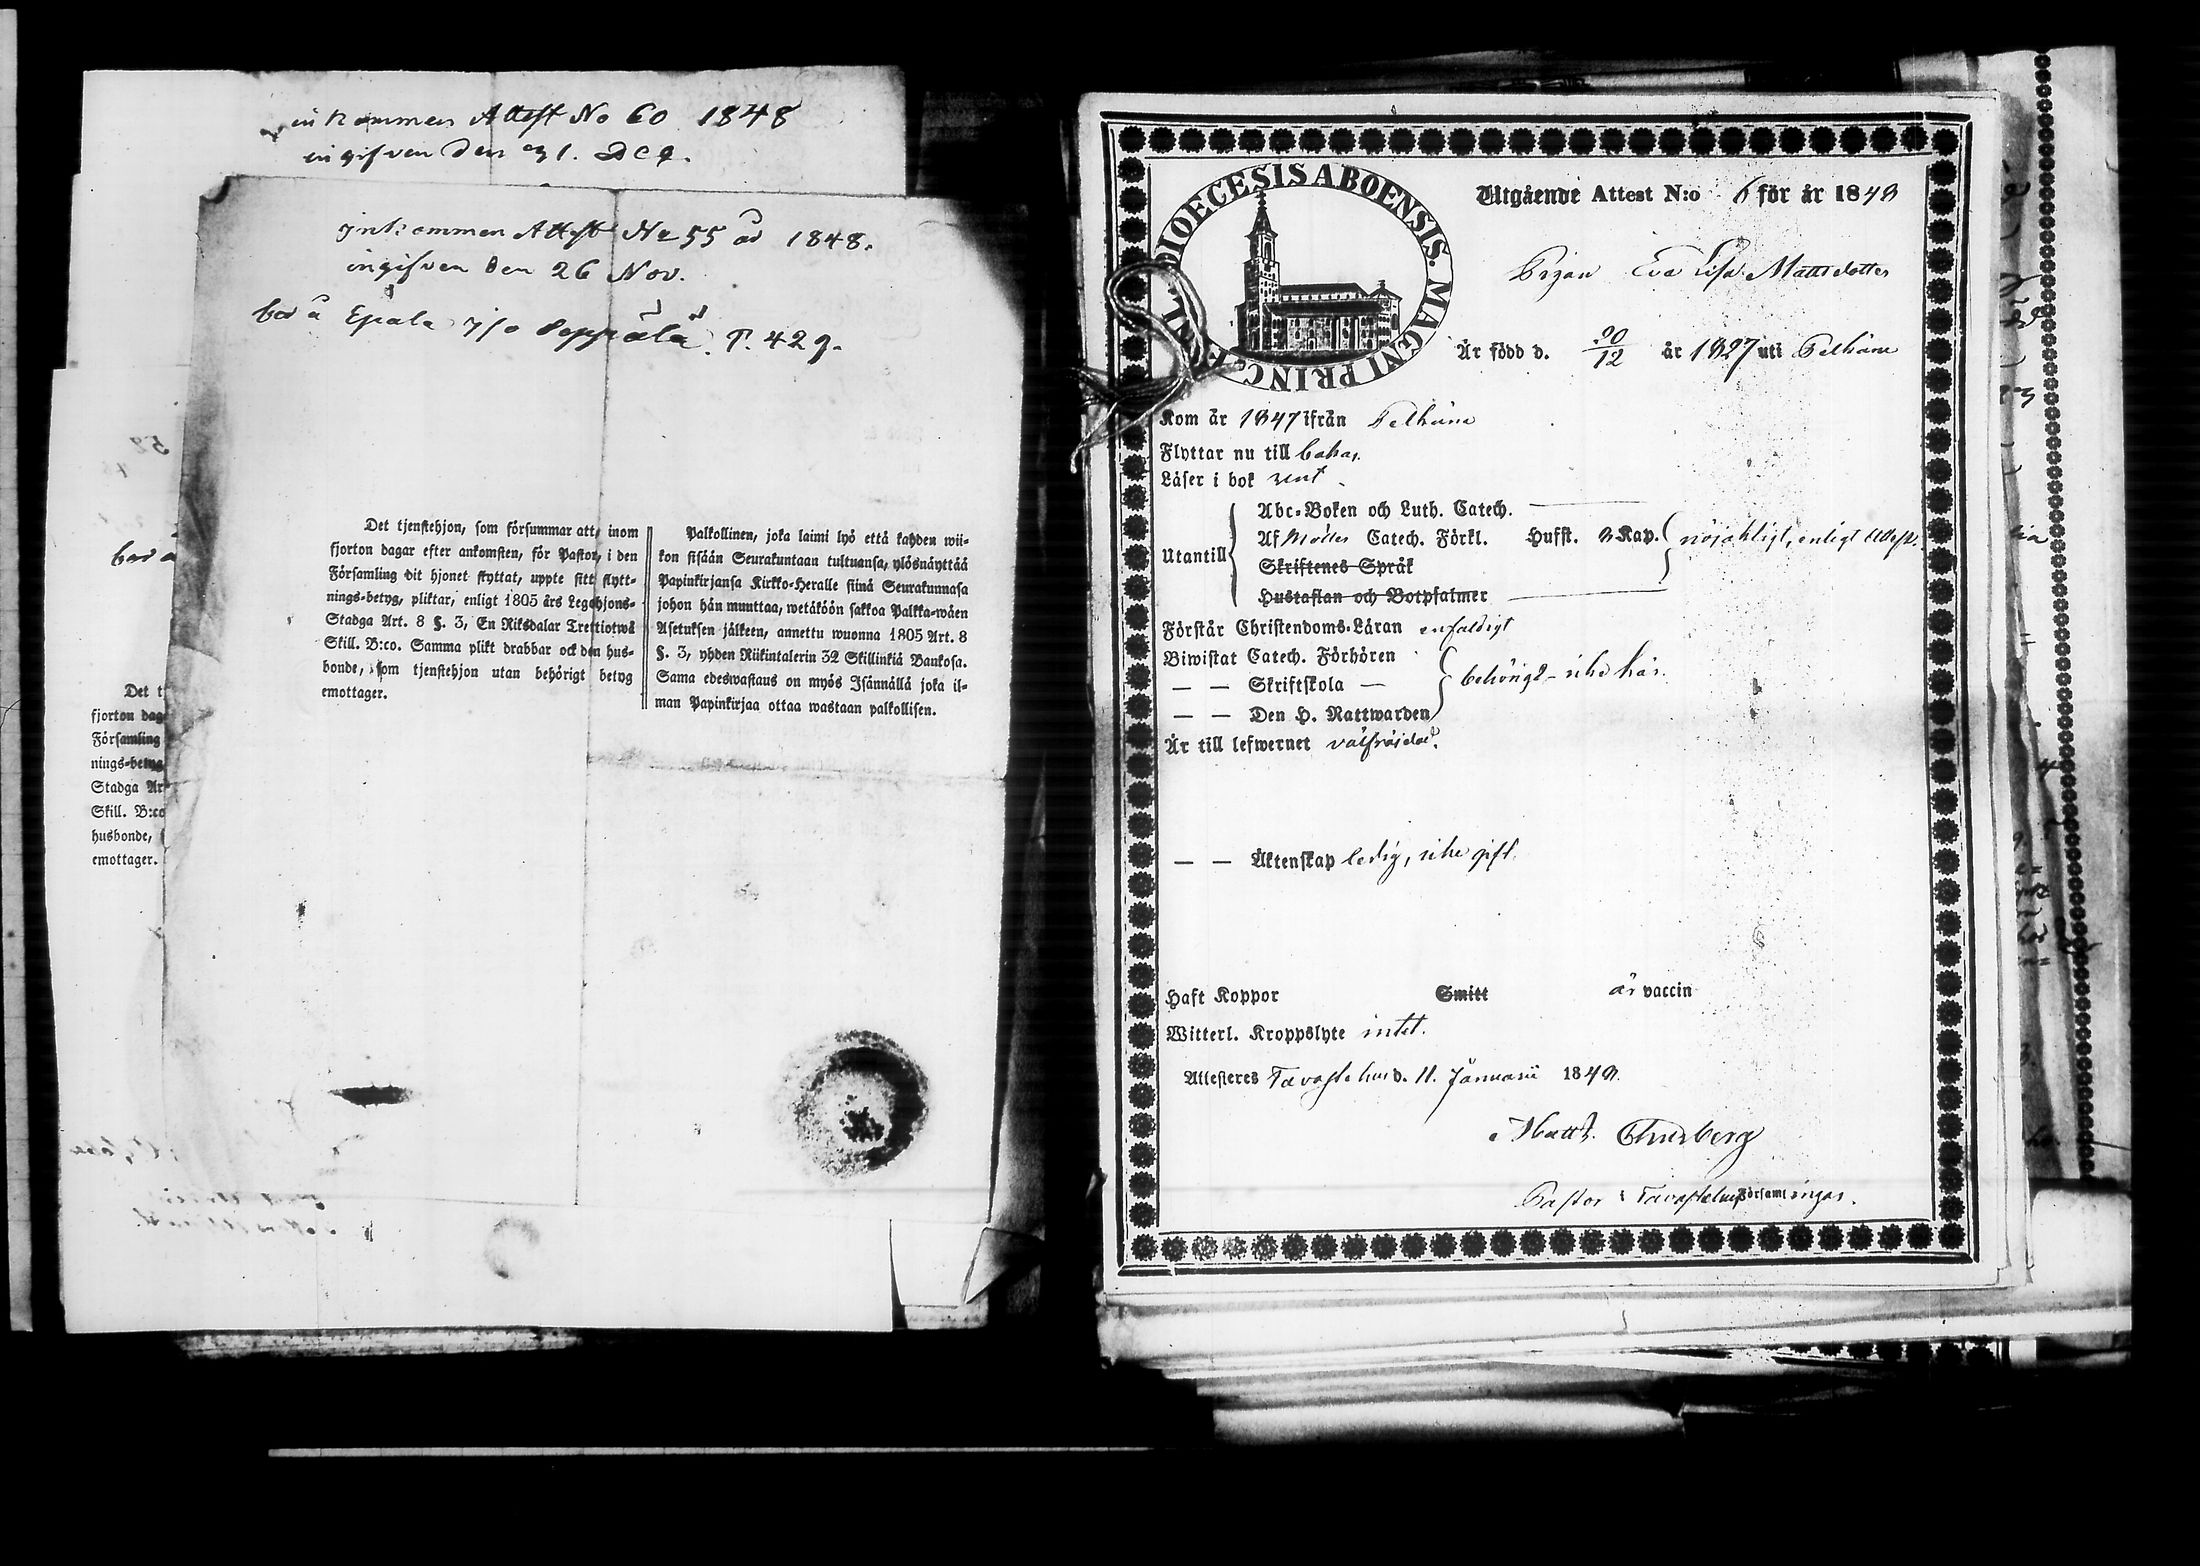 inkommen Attest No 60 1848
ingifven den 31. Dec.
Inkommen Attest No 55 ad 1848.
ingifven den 26 Nov.
bod å Epala Seppälä P. 429.
Det tjenstehjon, som försummar att, inom
fjorton dagar efter ankomsten, för Pastor, i den
Församling dit hjonet flyttat, uppte sitt flytt-
nings-betyg, pliktar, enligt 1805 års Legohjons-
Stadga Art. 8 §. 3, En Riksdalar Trettiotwå
Skill. B:co. Samma plikt drabbar ock den hus-
bonde, som tjenstehjon utan behörigt betyg
emottager.
Palkollinen, joka laimi lyö että kahden wii-
kon sisään Seurakuntaan tultuansa, ylösnäyttää
Papinkirjansa Kirkko-Heralle siinä Seurakunnasa
johon hän muuttaa, wetäköön sakkoa Palkka-wäen
Asetuksen jälkeen, annettu wuonna 1805 Art. 8
§. 3, yhden Riikintalerin 32 Skillinkiä Bankosa.
Sama edeswastaus on myös Isännällä joka il-
man Papinkirjaa ottaa wastaan palkollisen.
Det t
fjorton dag
Församling
nings-betyg
Stadga Ar
Skill. B:co
husbonde,
emottager.
DIOECESIS ABOENSIS. MAGNI PRINC.
Utgående Attest N:o 6 för år 1848
Pigan Eva Lisa Mattsdotter
Är född d. 20/12 år 1827 uti Pelkäne
Kom år 1847 ifrån Pelkäne
Flyttar nu till
Läser i bok rent.
Utantill
Abc-Boken och Luth. Catech.
Af Möllers Catech. Förkl. Hufst. Kap. nöjaktigt, enligt Attest.
Skriftenes Språk
Hustaflan och Botpsalmer
Förstår Christendoms-Läran enfaldigt
Biwistat Catech. Förhören
— — Skriftskola — behörigt – icke här.
— — Den H. Nattwarden
Är till lefwernet välfrejdad.
— — Äktenskap ledig, icke gift.
Haft Koppor Smitt är vaccin
Witterl. Kroppslyte intet.
Attesteres Tavastehus d. 11. Januarii 1848.
Matth. Thurberg
Pastor i Tavastehus Församlingar.